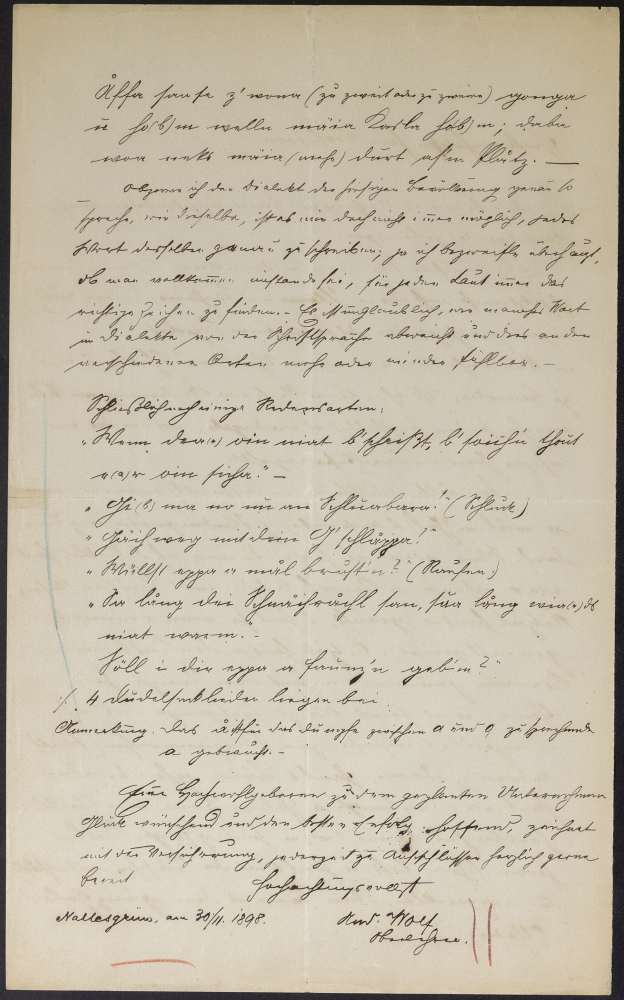 Åffa san se z' wona (zu zweit oder zu zweien) ganga
u ho(b)m wella máia Karla hob)m; dabei
woa neks máia (mehr) durt af'n Plåtz. —
Obzwar ich den Dialekt der hiesigen Bevölkerung genau so
spreche, wie dieselbe, ist es mir doch nicht immer möglich, jedes
Wort desselben genau zu schreiben; ja ich bezweifle überhaupt,
ob man vollkommen imstande sei, für jeden Laut immer das
richtige Zeichen zu finden. – Es ist unglaublich, wie manches Wort
im Dialekte von der Schriftsprache abweicht und dies an den
verschiedenen Orten mehr oder minder fühlbar. –
Schließlich noch einige Redensarten:
„Wenn dea(r) oin niat b'scheißt, b'soicht thout
e(a)r oin sicha." –
„Gi(b) ma no an Schluabara!" (Schluck)
„Gäih weg mit dein G'schlåppa!"
„Wüllst eppa a mål brust'n?" (Raufen)
„Sa lång dei Schnäiråchl san, säa lång wia(r)ds
niat warm." –
Söll i dir eppa a faunz'n geb'm?"
./. 4 Dudelsacklieder liegen bei.
Anmerkung. Das å ist für das dumpfe zwischen a und o zu sprechende
a gebraucht. –
Euer Hochwohlgeboren zu dem geplanten Unternehmen
Glück wünschend und den besten Erfolg erhoffend, zeichnet
mit der Versicherung, jederzeit zu Aufschlüssen herzlich gerne
bereit hochachtungsvollst
Nallesgrün, am 30/4. 1898. And. Wolf
Oberlehrer.